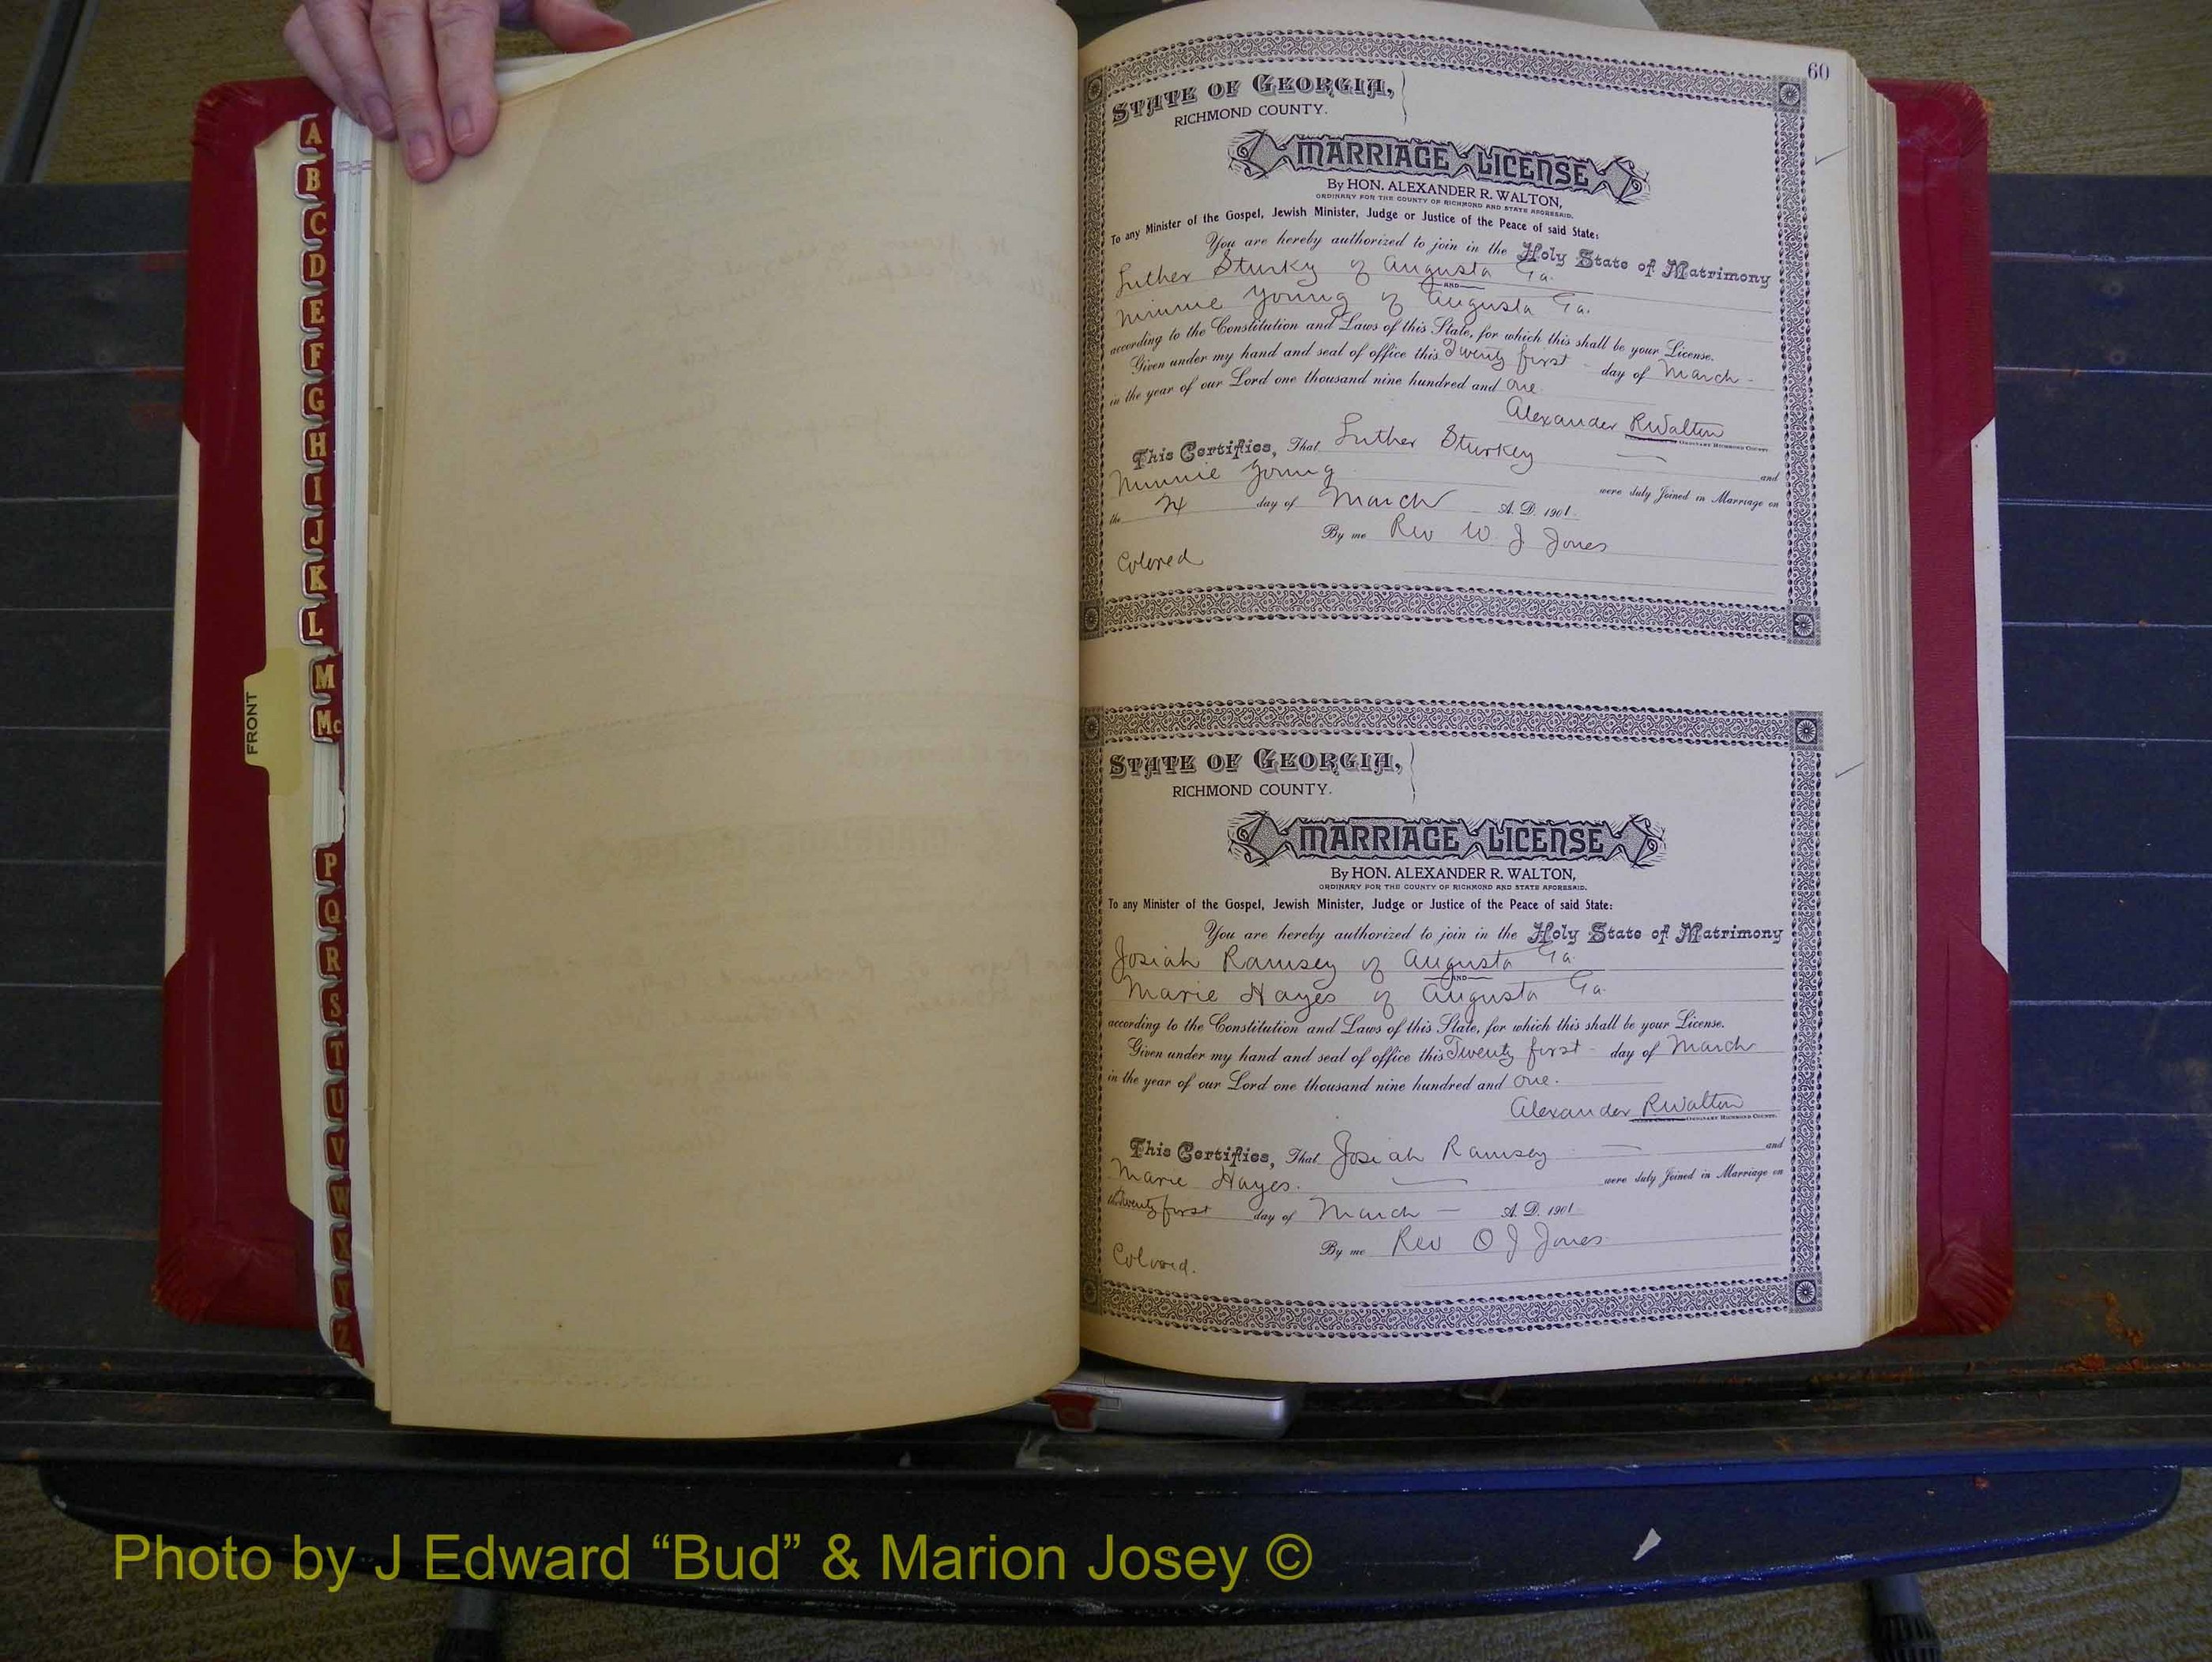 A
B
C
D
E
F
G
H
I
J
K
L
M
Mc
FRONT
P
Q
R
S
T
U
V
W
X
Y
Z
60
STATE OF GEORGIA,
RICHMOND COUNTY.
MARRIAGE LICENSE
By HON. ALEXANDER R. WALTON,
ORDINARY FOR THE COUNTY OF RICHMOND AND STATE AFORESAID.
To any Minister of the Gospel, Jewish Minister, Judge or Justice of the Peace of said State:
You are hereby authorized to join in the Holy State of Matrimony
Luther Sturky of Augusta Ga.
AND
Minnie Young of Augusta Ga.
according to the Constitution and Laws of this State, for which this shall be your License.
Given under my hand and seal of office this Twenty first day of March
in the year of our Lord one thousand nine hundred and one.
Alexander R Walton
ORDINARY RICHMOND COUNTY.
This Certifies, That Luther Sturkey and
Minnie Young were duly Joined in Marriage on
the day of March A. D. 1901
By me Rev W. J Jones
Colored
STATE OF GEORGIA,
RICHMOND COUNTY.
MARRIAGE LICENSE
By HON. ALEXANDER R. WALTON,
ORDINARY FOR THE COUNTY OF RICHMOND AND STATE AFORESAID.
To any Minister of the Gospel, Jewish Minister, Judge or Justice of the Peace of said State:
You are hereby authorized to join in the Holy State of Matrimony
Josiah Ramsey of Augusta Ga.
AND
Marie Hayes of Augusta Ga.
according to the Constitution and Laws of this State, for which this shall be your License.
Given under my hand and seal of office this Twenty first day of March
in the year of our Lord one thousand nine hundred and one.
Alexander R Walton
ORDINARY RICHMOND COUNTY.
This Certifies, That Josiah Ramsey and
Marie Hayes. were duly Joined in Marriage on
the Twenty first day of March A. D. 1901
By me Rev O J Jones
Colored.
Photo by J Edward “Bud” & Marion Josey ©